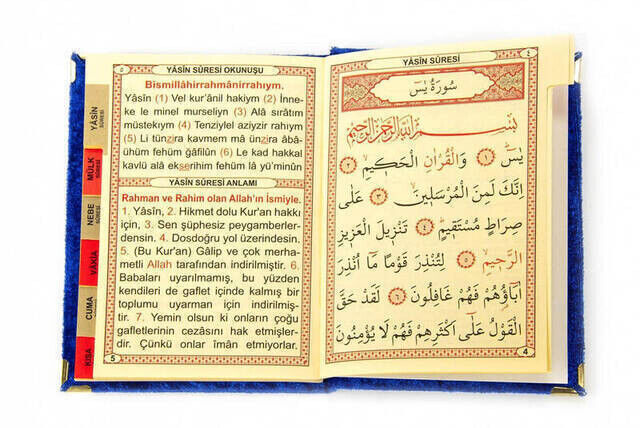 YÂSİN SÛRESİ OKUNUŞU
Bismillâhirrahmânirrahıym.
Yâsîn (1) Vel kur'ânil hakiym (2) İnne-
ke le minel murseliyn (3) Alâ sırâtım
müstekıym (4) Tenziylel aziyzir rahıym
(5) Li tünzira kavmem mâ ünzira âbâ-
ühüm fehüm ğâfilûn (6) Le kad hakkal
kavlü alâ ekserihim fehüm lâ yü'minûn
YÂSÎN SÛRESİ ANLAMI
Rahman ve Rahim olan Allah'ın İsmiyle.
1. Yâsîn, 2. Hikmet dolu Kur'an hakkı
için, 3. Sen şüphesiz peygamberler-
densin. 4. Dosdoğru yol üzerindesin.
5. (Bu Kur'an) Gâlip ve çok merha-
metli Allah tarafından indirilmiştir. 6.
Babaları uyarılmamış, bu yüzden
kendileri de gaflet içinde kalmış bir
toplumu uyarman için indirilmiş-
tir. 7. Yemin olsun ki onların çoğu
gafletlerinin cezasını hak etmişler-
dir. Çünkü onlar îmân etmiyorlar.
5
YÂSİN SÛRESİ
MÜLK SÛRESİ
NEBE SÛRESİ
VÂKIA
CUMA
KISA
YÂSİN SÛRESİ
٤
سُورَةُ يٰسٓ
بِسْمِ اللّٰهِ الرَّحْمٰنِ الرَّحِيمِ
يٰسٓ ۚ ﴿١﴾ وَالْقُرْاٰنِ الْحَكِيمِ ۙ ﴿٢﴾
اِنَّكَ لَمِنَ الْمُرْسَلِينَ ۙ ﴿٣﴾ عَلٰى
صِرَاطٍ مُسْتَقِيمٍ ۜ ﴿٤﴾ تَنْزِيلَ الْعَزِيزِ
الرَّحِيمِ ۙ ﴿٥﴾ لِتُنْذِرَ قَوْمًا مَٓا اُنْذِرَ
اٰبَٓاؤُهُمْ فَهُمْ غَافِلُونَ ﴿٦﴾ لَقَدْ حَقَّ
الْقَوْلُ عَلٰٓى اَكْثَرِهِمْ فَهُمْ لَا يُؤْمِنُونَ
4